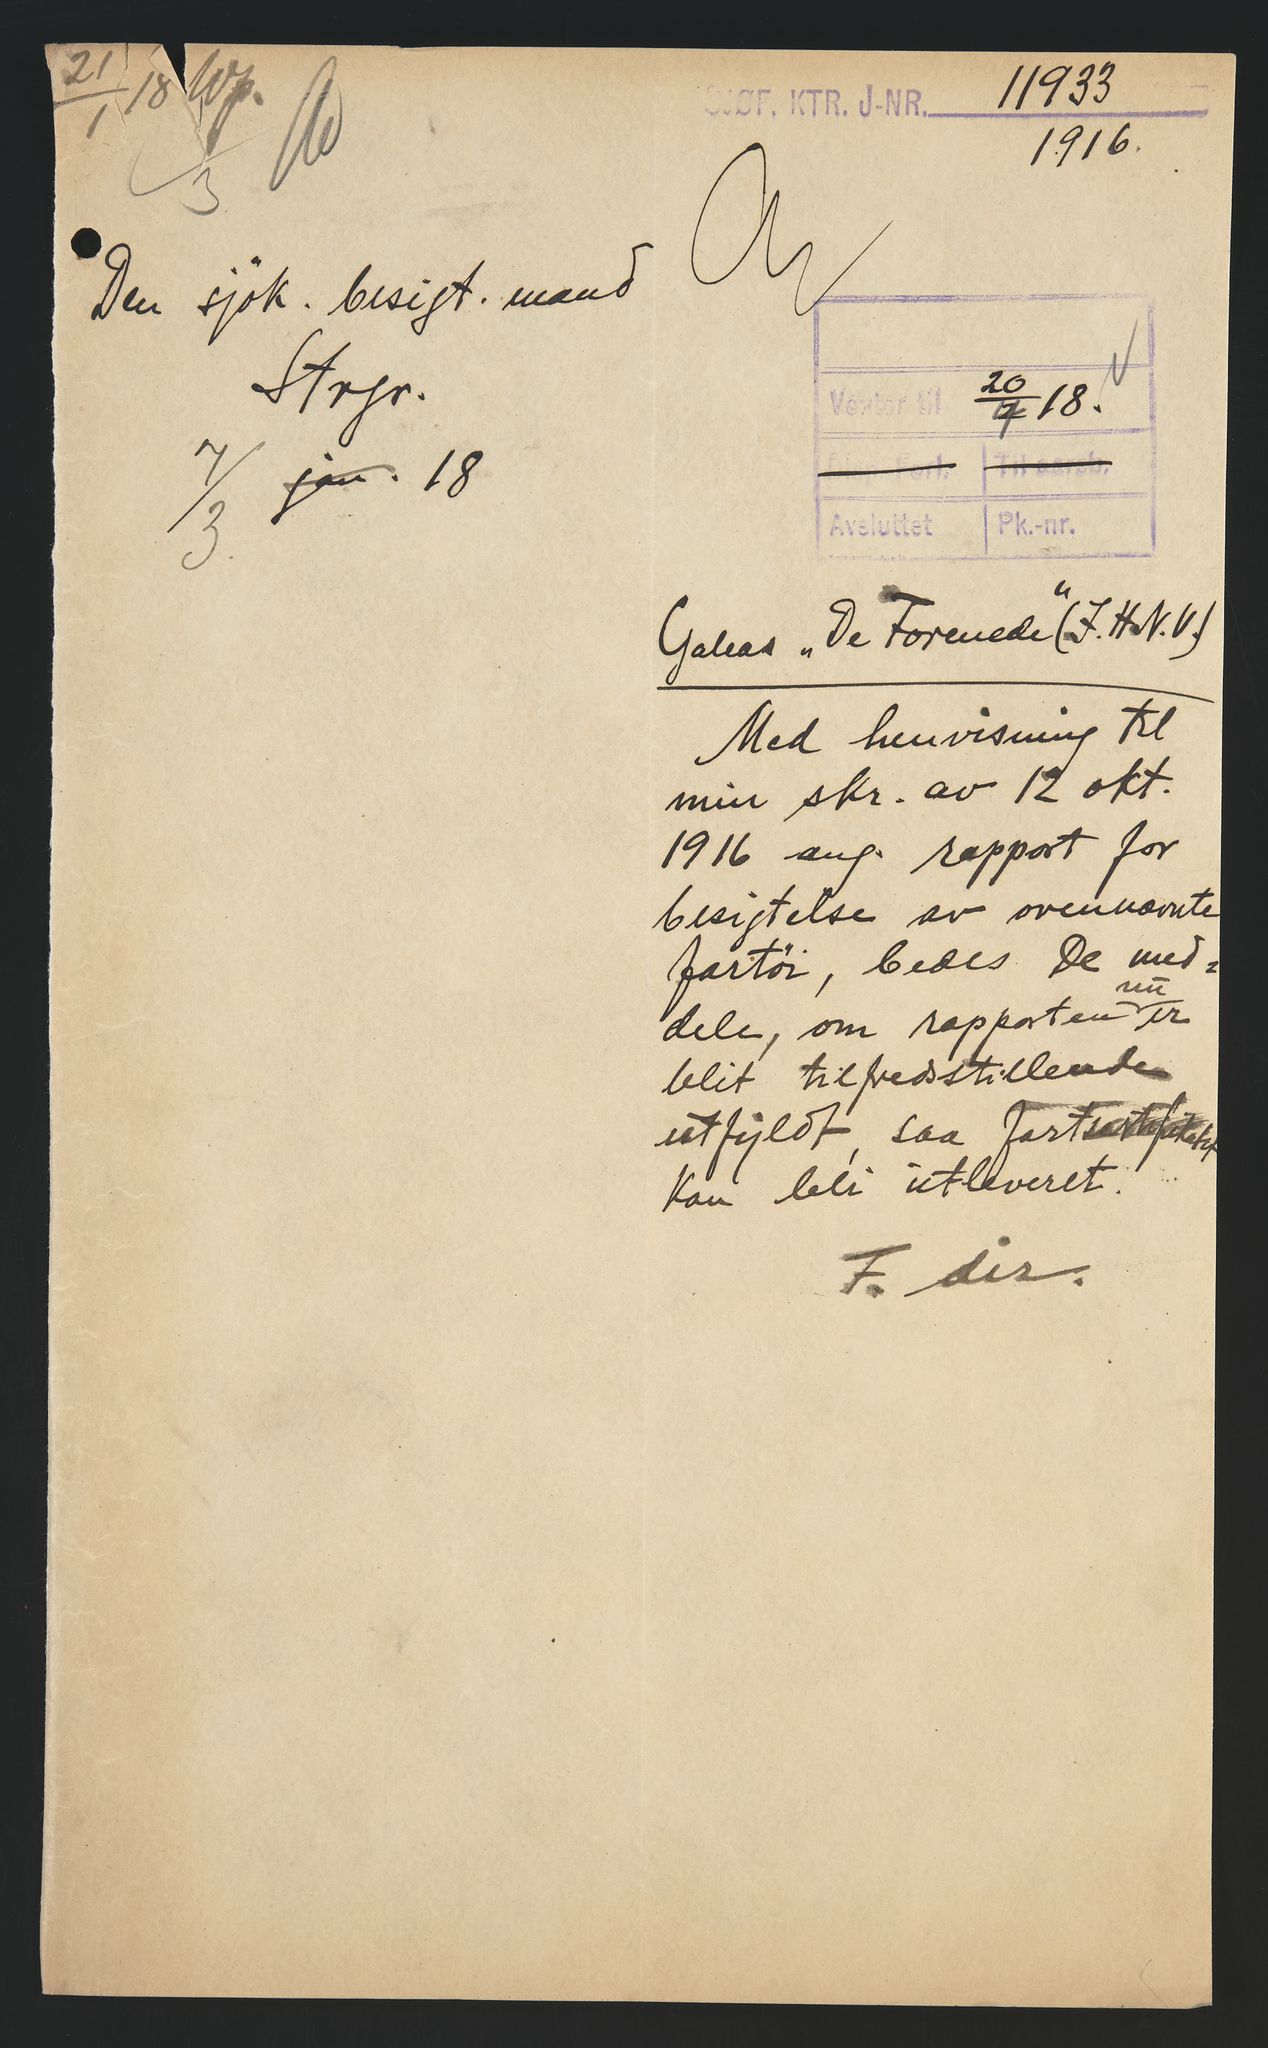 21/1 18 Wp.
/3
SJØF. KTR. J-NR. 11933
1916.
Den sjök. besigt. mand
Strgr.
7/3 jan. 18
Venter til 20/4 18.
Til aarsb.
Avsluttet Pk.-nr.
Galeas „De Forenede" (J.H.N.V.)
Med henvisning til
min skr. av 12 okt.
1916 ang. rapport for
besigtelse av ovennævnte
fartöi, bedes De med=
dele, om rapporten nu er
blit tilfredsstillende
utfyldt, saa fartscertifikatet
kan bli utleveret.
F. dir.